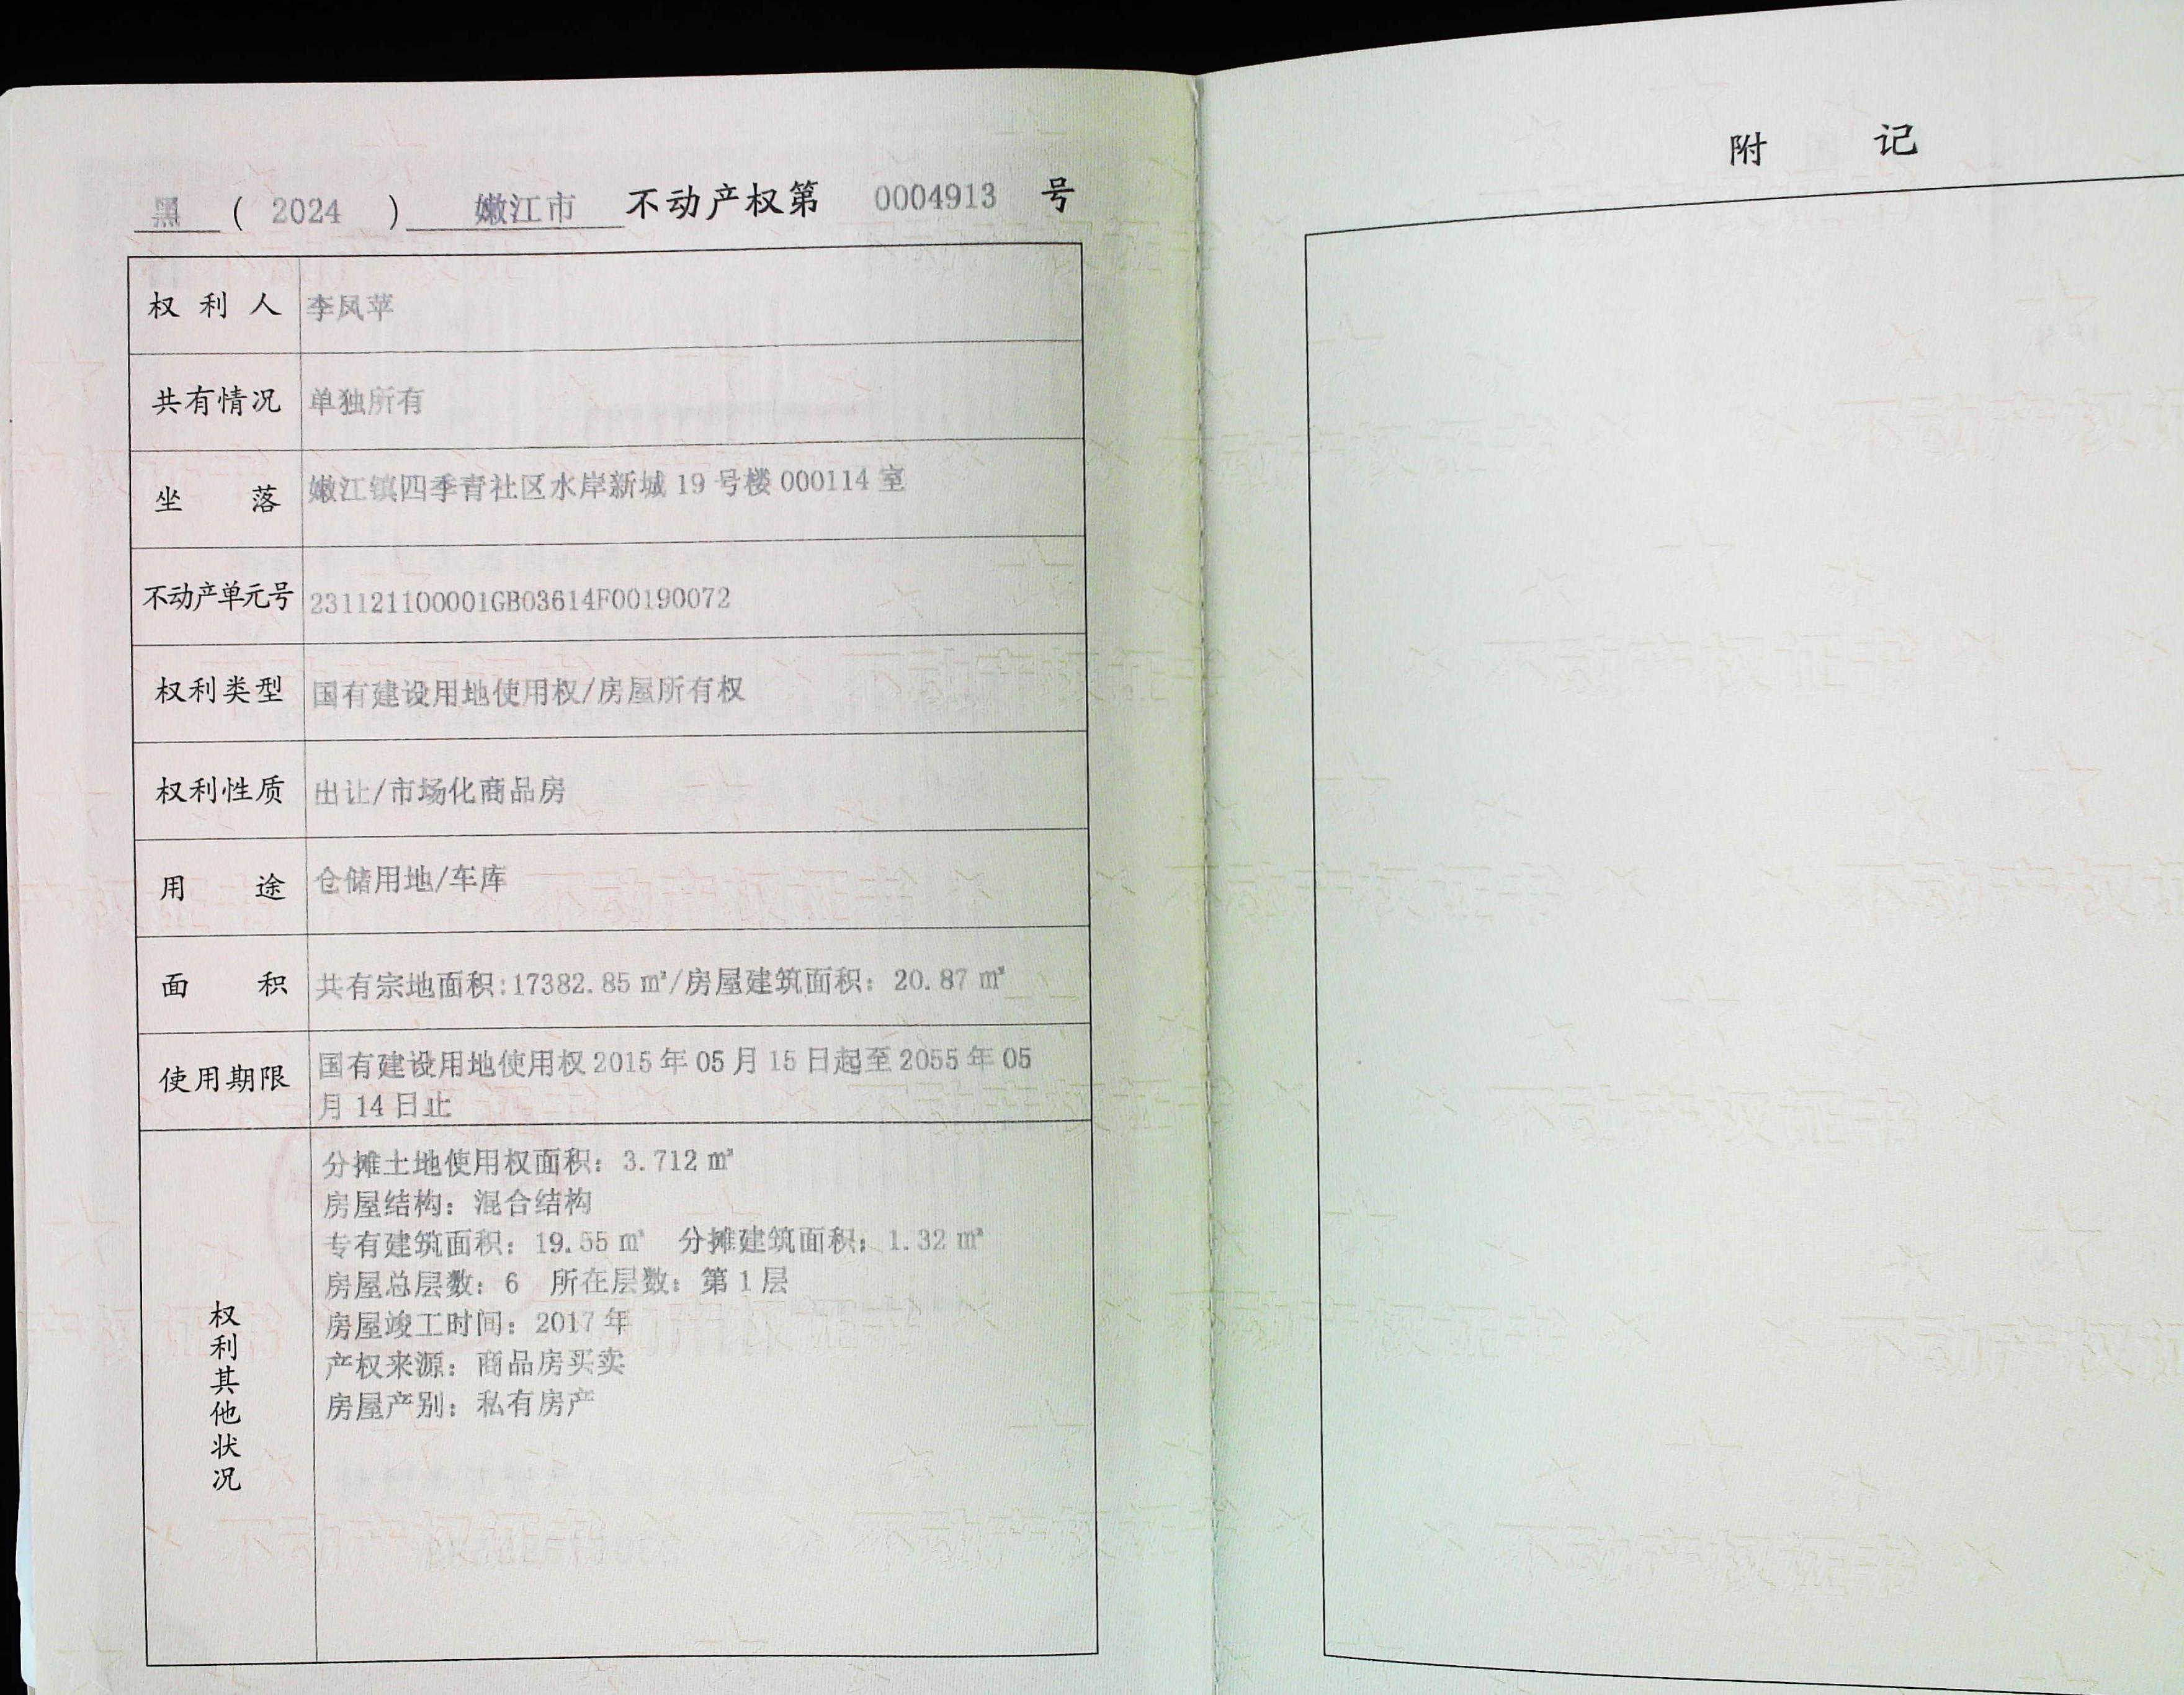 黑 ( 2024 ) 嫩江市 不动产权第 0004913 号
权利人 李凤苹
共有情况 单独所有
坐落 嫩江镇四季青社区水岸新城 19 号楼 000114 室
不动产单元号 231121100001GB03614F00190072
权利类型 国有建设用地使用权/房屋所有权
权利性质 出让/市场化商品房
用途 仓储用地/车库
面积 共有宗地面积:17382.85 ㎡/房屋建筑面积: 20.87 ㎡
使用期限 国有建设用地使用权 2015 年 05 月 15 日起至 2055 年 05
月 14 日止
权利其他状况
分摊土地使用权面积: 3.712 ㎡
房屋结构: 混合结构
专有建筑面积: 19.55 ㎡ 分摊建筑面积: 1.32 ㎡
房屋总层数: 6 所在层数: 第 1 层
房屋竣工时间: 2017 年
产权来源: 商品房买卖
房屋产别: 私有房产
附 记